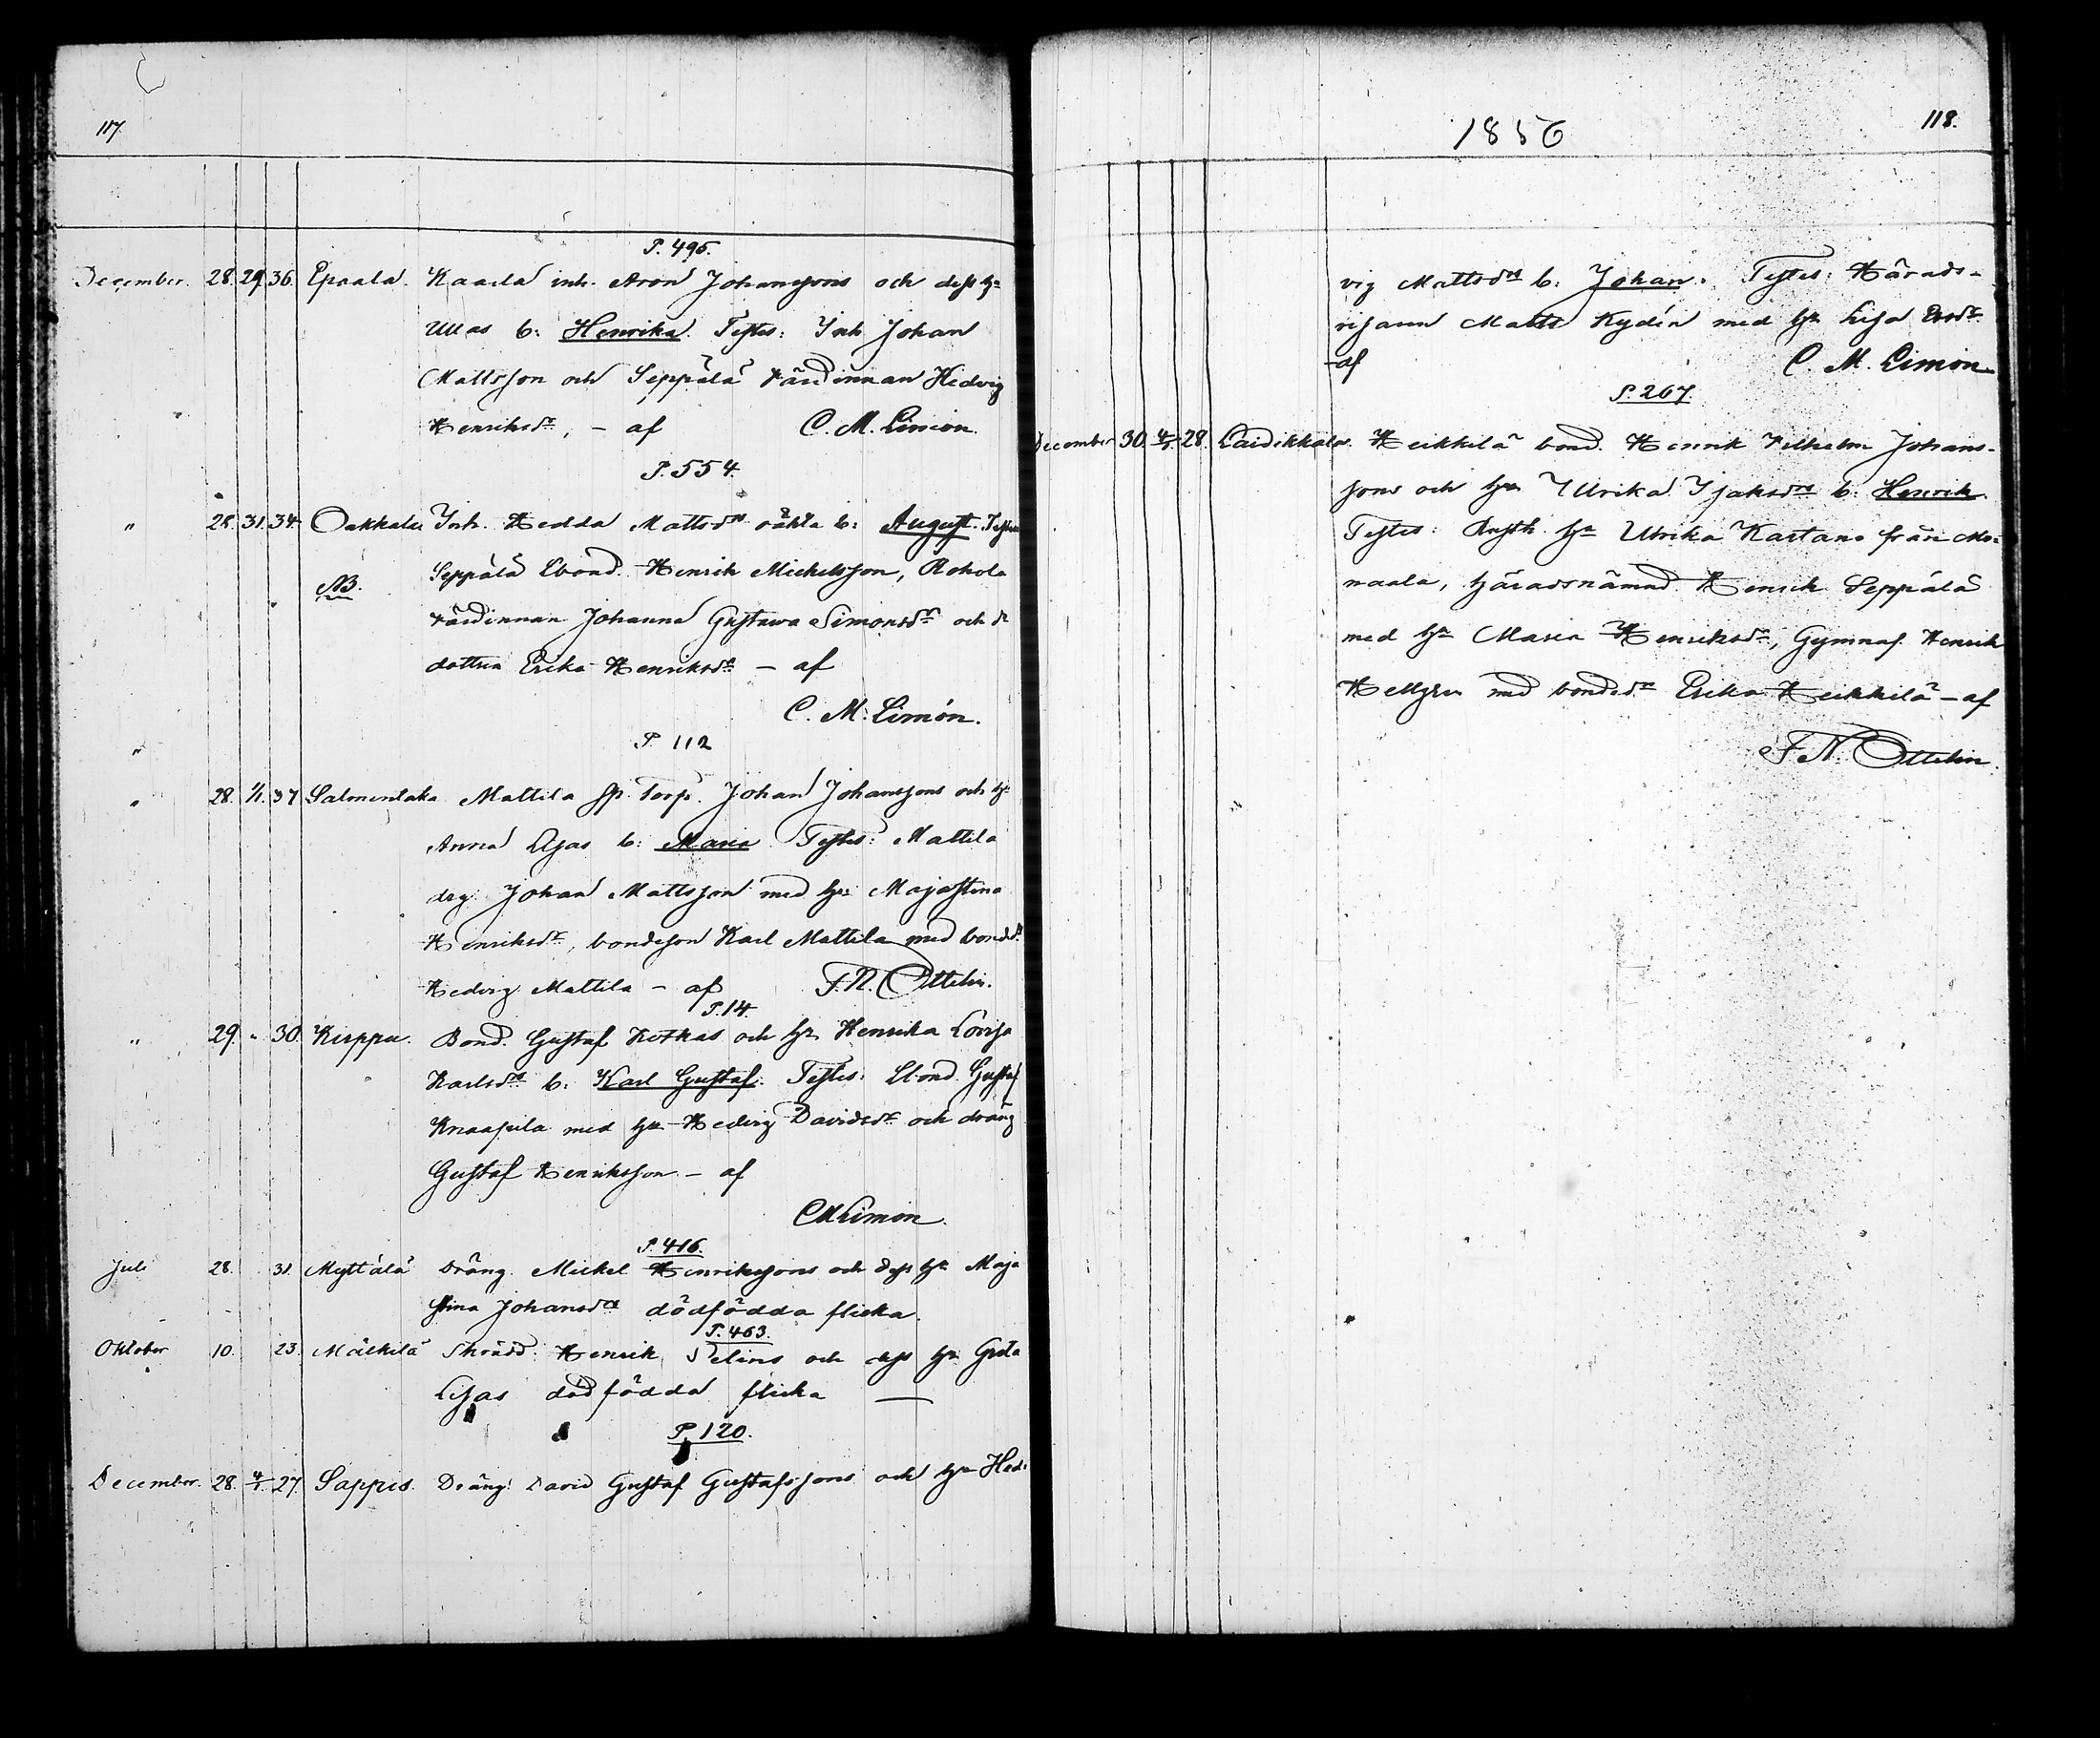 117.
P. 495.
December. 28. 29. 36. Epaala. Kaarla inh. Aron Johanssons och dess h:u
Ullas b: Henrika. Testes: Inh. Johan
Mattsson och Seppälä värdinnan Hedvig
Henriksdr, – af C. M. Limón.
P. 554.
" 28. 31. 34. Oakkala Inh. Hedda Mattsdrs oäkta b: August. Testes
NB. Seppälä Bond. Henrik Mickelsson, Rohola
värdinnan Johanna Gustawa Simonsdr och
dottren Erika Henriksdr – af
C. M. Limón.
P. 112
" 28. 1/1. 37 Salmentaka Mattila sp. Torp. Johan Johanssons och h:u
Anna Lisas b: Maria Testes: Mattila
drg. Johan Mattsson med h:u Majastina
Henriksdr, bondeson Karl Mattila med bonded.
Hedvig Mattila – af F. N. Ottelin.
P. 14.
" 29. " 30. Kirppu. Bond. Gustaf Kotkas och h:u Henrika Lovisa
Karlsdrs b: Karl Gustaf. Testes: Bond. Gustaf
Knaapila med h:u Hedvig Davidsdr och dräng
Gustaf Henriksson – af
CMLimón.
P. 416.
Juli 28. 31. Myttälä Dräng. Mickel Henrikssons och dess h:u Maja
Stina Johansdrs dödfödda flicka.
P. 463.
Oktober 10. 23. Mälkilä Skrädd. Henrik Selins och dess h:u Greta
Lisas dödfödda flicka —
P. 120.
December. 28. 4/1. 27. Sappes. Dräng. David Gustaf Gustafssons och h:u Hed-
1856
118.
vig Mattsdrs b: Johan. Testes: Härads-
Matts Rydén med h:u Lisa Ersdr.
– af C. M. Limón
P. 267.
December 30. 4/1. 28. Laidikkala. Heikkilä bond. Henrik Vilhelm Johans-
sons och h:u Ulrika Isaksdrs b: Henrik.
Testes: Rusth. h:u Ulrika Kartano från
naala, häradsnämnd. Henrik Seppälä
med h:u Maria Henriksdr, Gymnas. Henrik
Hellgren med bondedr Erika Heikkilä – af
F. N. Ottelin.